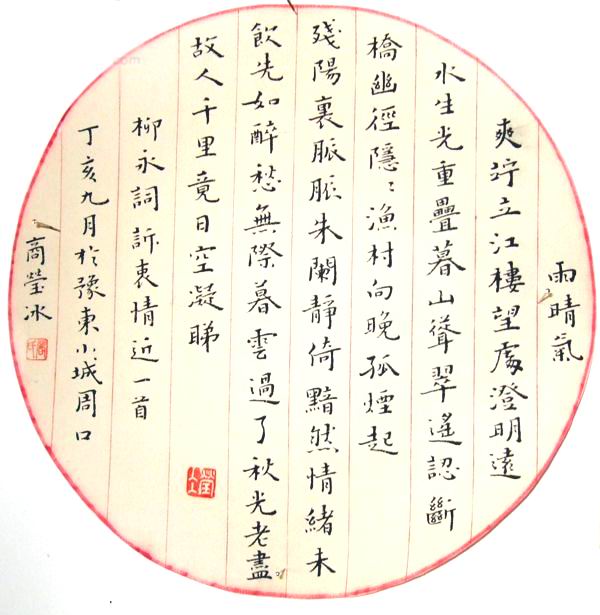 雨晴氣
爽竚立江樓望處澄明遠
水生光重疊暮山聳翠遙認斷
橋幽徑隱〻漁村向晚孤煙起
殘陽裏脈脈朱闌靜倚黯然情緒未
飲先如醉愁無際暮雲過了秋光老盡
故人千里竟日空凝睇
柳永詞訴衷情近一首
丁亥九月於豫東小城周口
商瑩冰